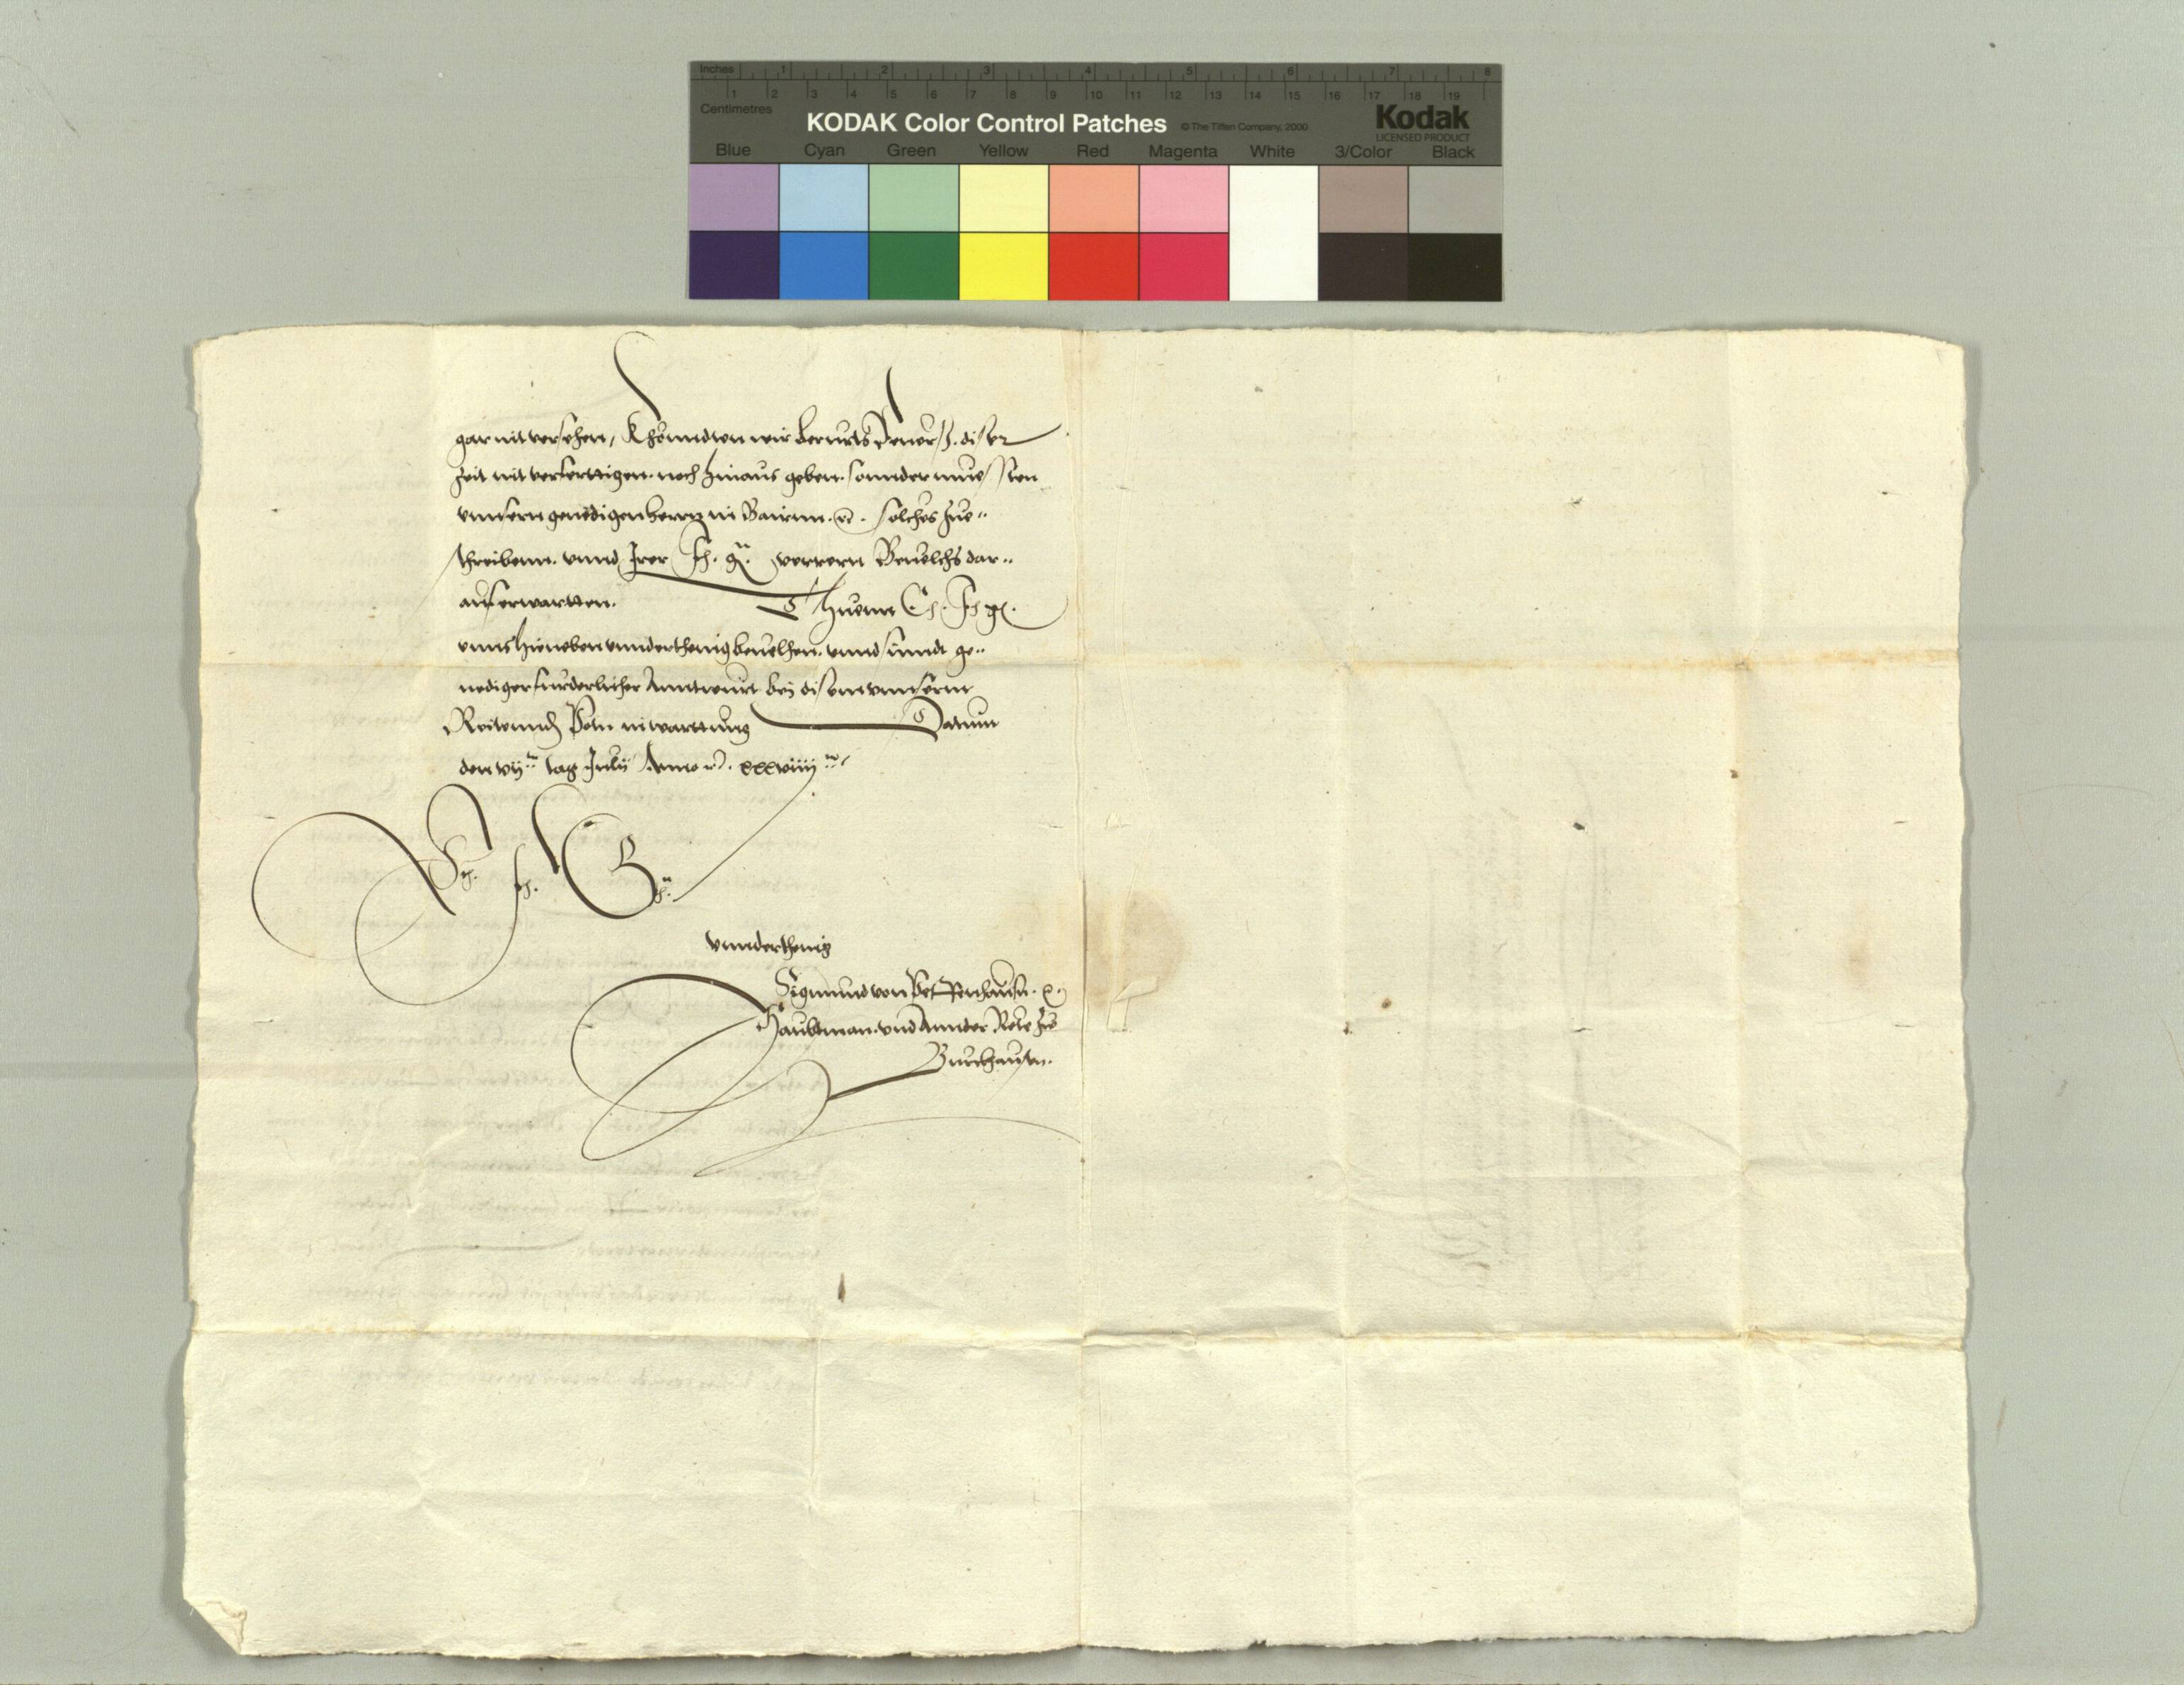 Inches 1 2 3 4 5 6 7 8
1 2 3 4 5 6 7 8 9 10 11 12 13 14 15 16 17 18 19
Centimetres
KODAK Color Control Patches © The Tiffen Company, 2000 Kodak
LICENSED PRODUCT
Blue Cyan Green Yellow Red Magenta White 3/Color Black
gar nit versehen, Khönndten wir berurts diser
zeit nit verferttigen. noch hinaus geben. sonnder muessten
unnsern genedigen herrn in Bairnn. solches zue„
schreibenn. unnd Irer fh. g. verrern Bevelchs dar„
auf erwartten. Thuenn E. fh. g.
unns hieneben unnderthenig bevelhen. unnd sinndt ge„
nediger furderlicher Anntwurt bej disem unnserm
Reitennden Potn in warttung Datum
den vij tag Julij Anno xxxviiij
E. fh. G.
unnderthenig
Sigmund von
Haubtman. und Annder Rete zu
Burckhausen.